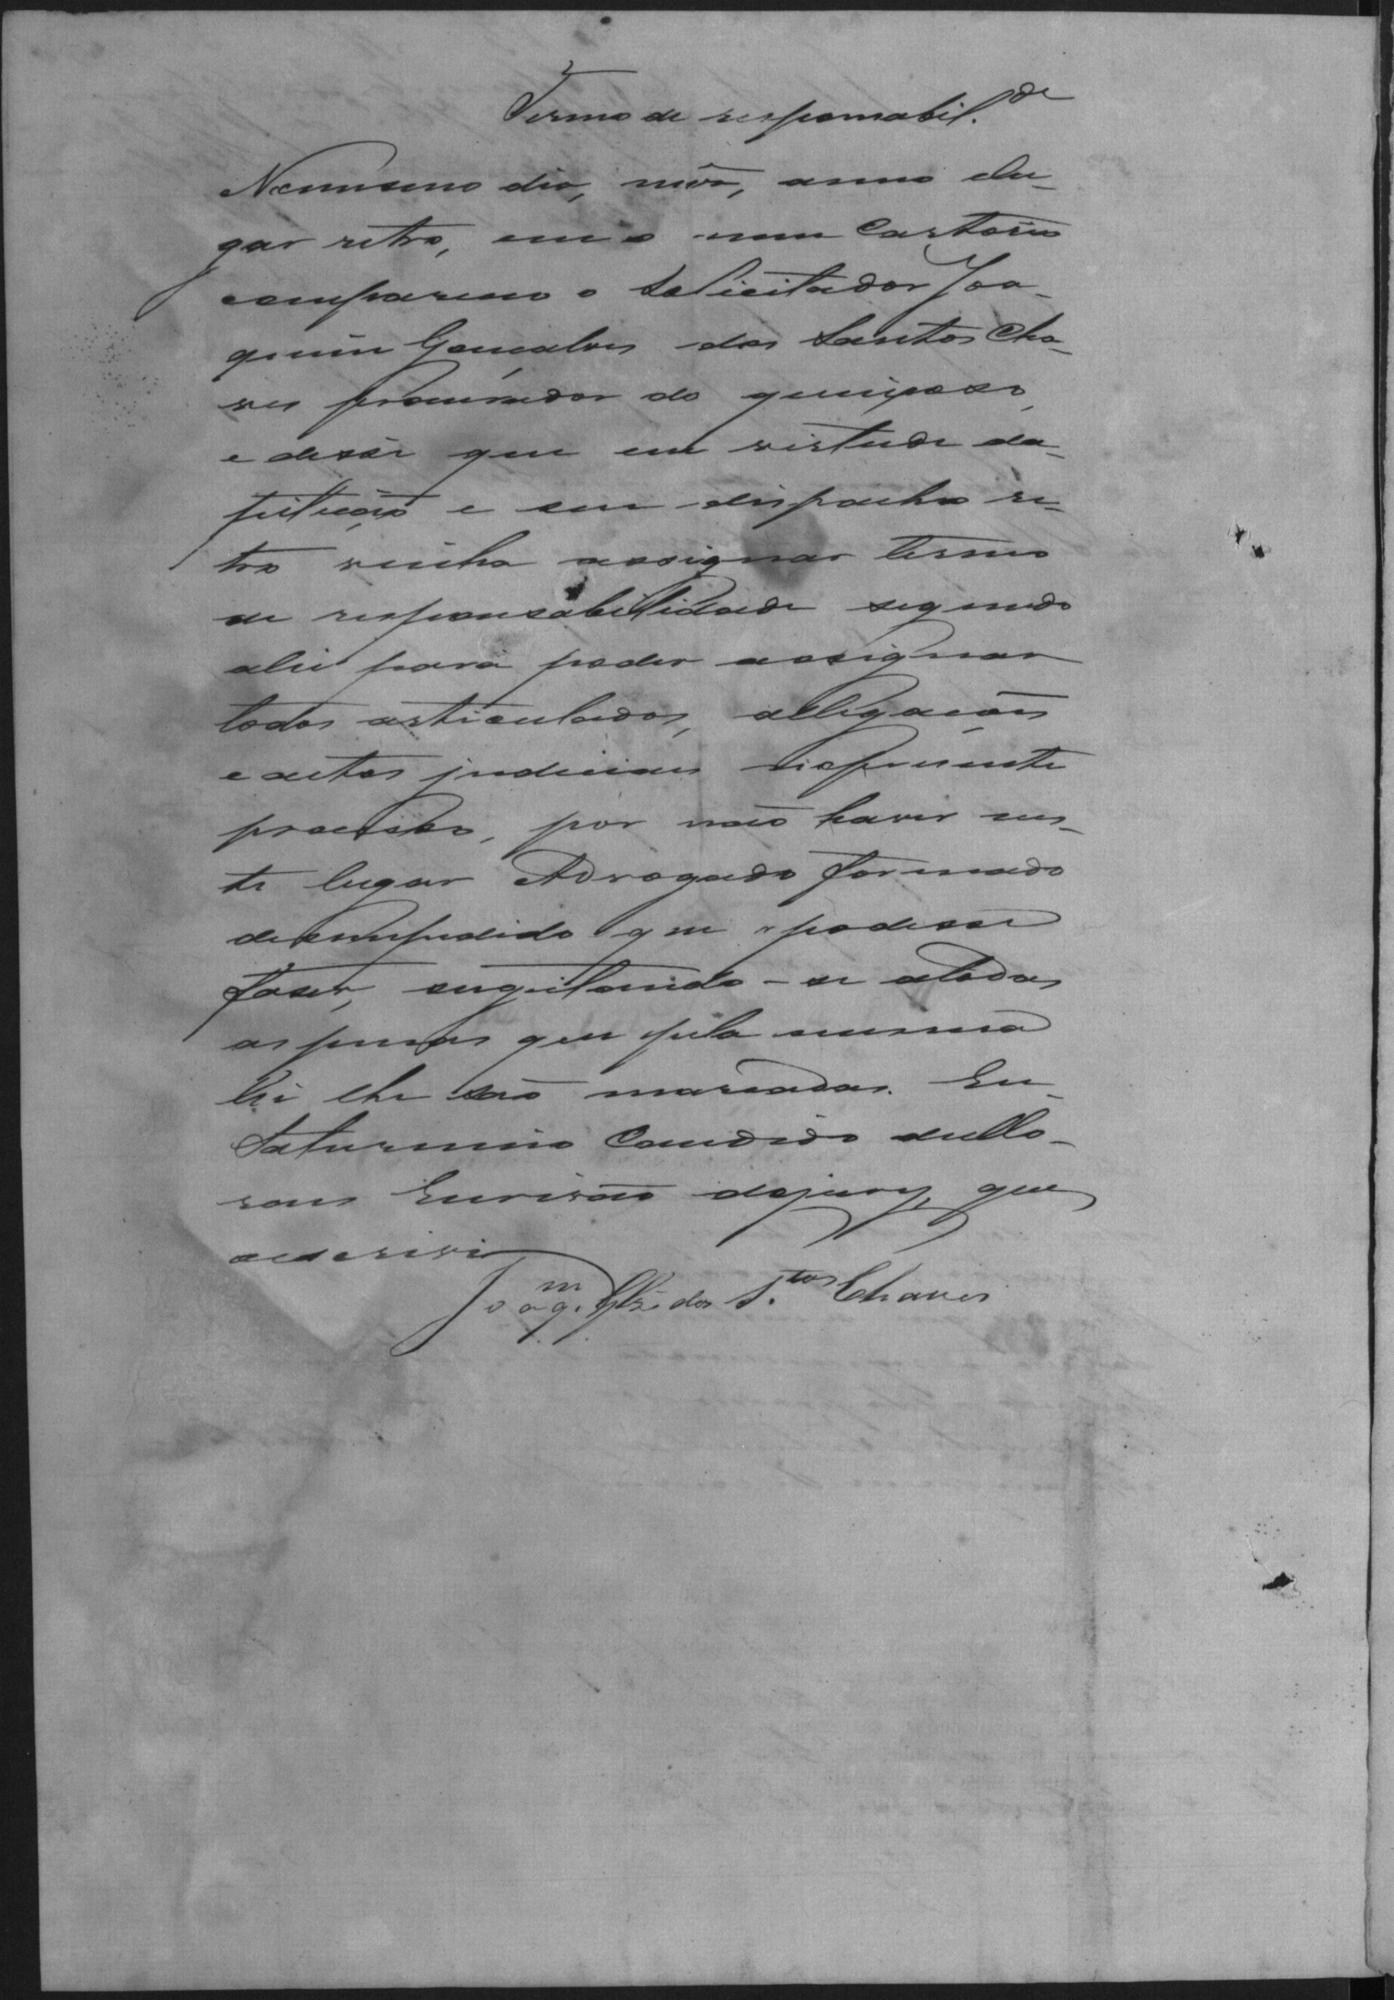 Termo de responsabil.de
No mesmo dia, mez, anno elu-
gar retro, em o meu Cartorio
compareceo o Solicitador Joa-
quim Gonçalves dos Santos Cha-
ves procurador do queixoso,
e disse que em virtude da
petição e seu despacho re-
tro vinha assignar termo
de responsabilidade segundo
alei para poder assignar
todos articulados, allegações
e actos judiciaes
processo, por não haver nes-
te lugar Advogado formado
desempedido que podesse
faser, sugeitando-se atodas
as penas que pela mesma
lei lhe são marcadas. Eu
Saturnino Candido de Mo-
raes Escrivão dojury, que
oescrivi
Joaq.m Glz. dos S.tos Chaves